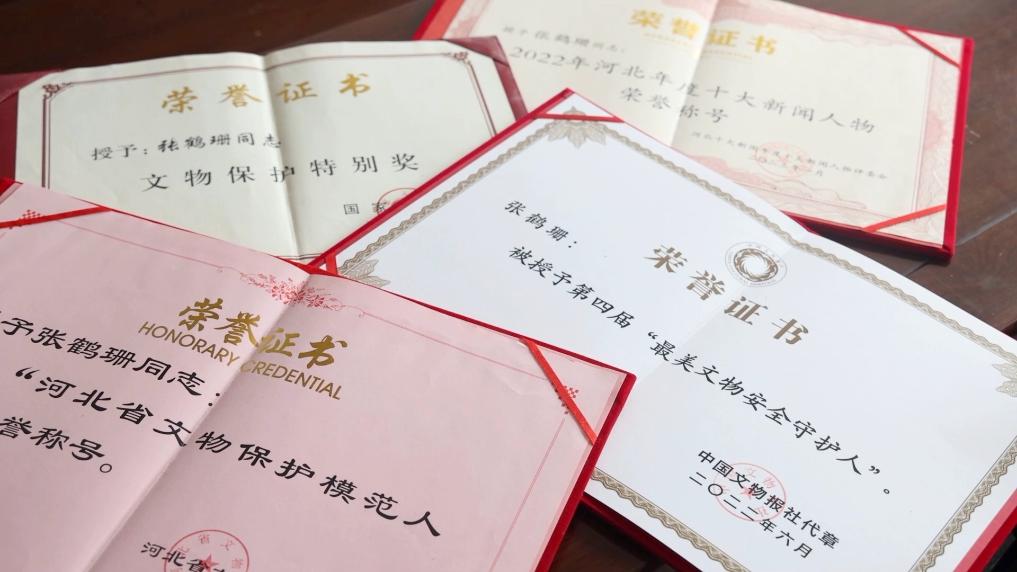 荣誉证书
授予：张鹤珊同志
文物保护特别奖
国家
荣誉证书
授予张鹤珊同志：
2022年河北年度十大新闻人物
荣誉称号
荣誉证书
HONORARY CREDENTIAL
予张鹤珊同志：
“河北省文物保护模范人
誉称号。
河北省
荣誉证书
张鹤珊：
被授予第四届“最美文物安全守护人”。
中国文物报社代章
二〇二二年六月